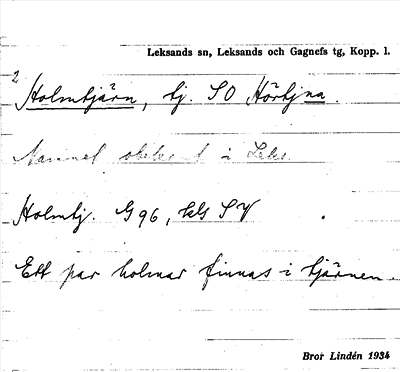 Leksands sn, Leksands och Gagnefs tg, Kopp. l.
2
Holmtjärn, tj. SO Hörtjna.
Namnet obekant i Leks.
Holmtj. G 96, bls SV
Ett par holmar finnas i tjärnen.
Bror Lindén 1934